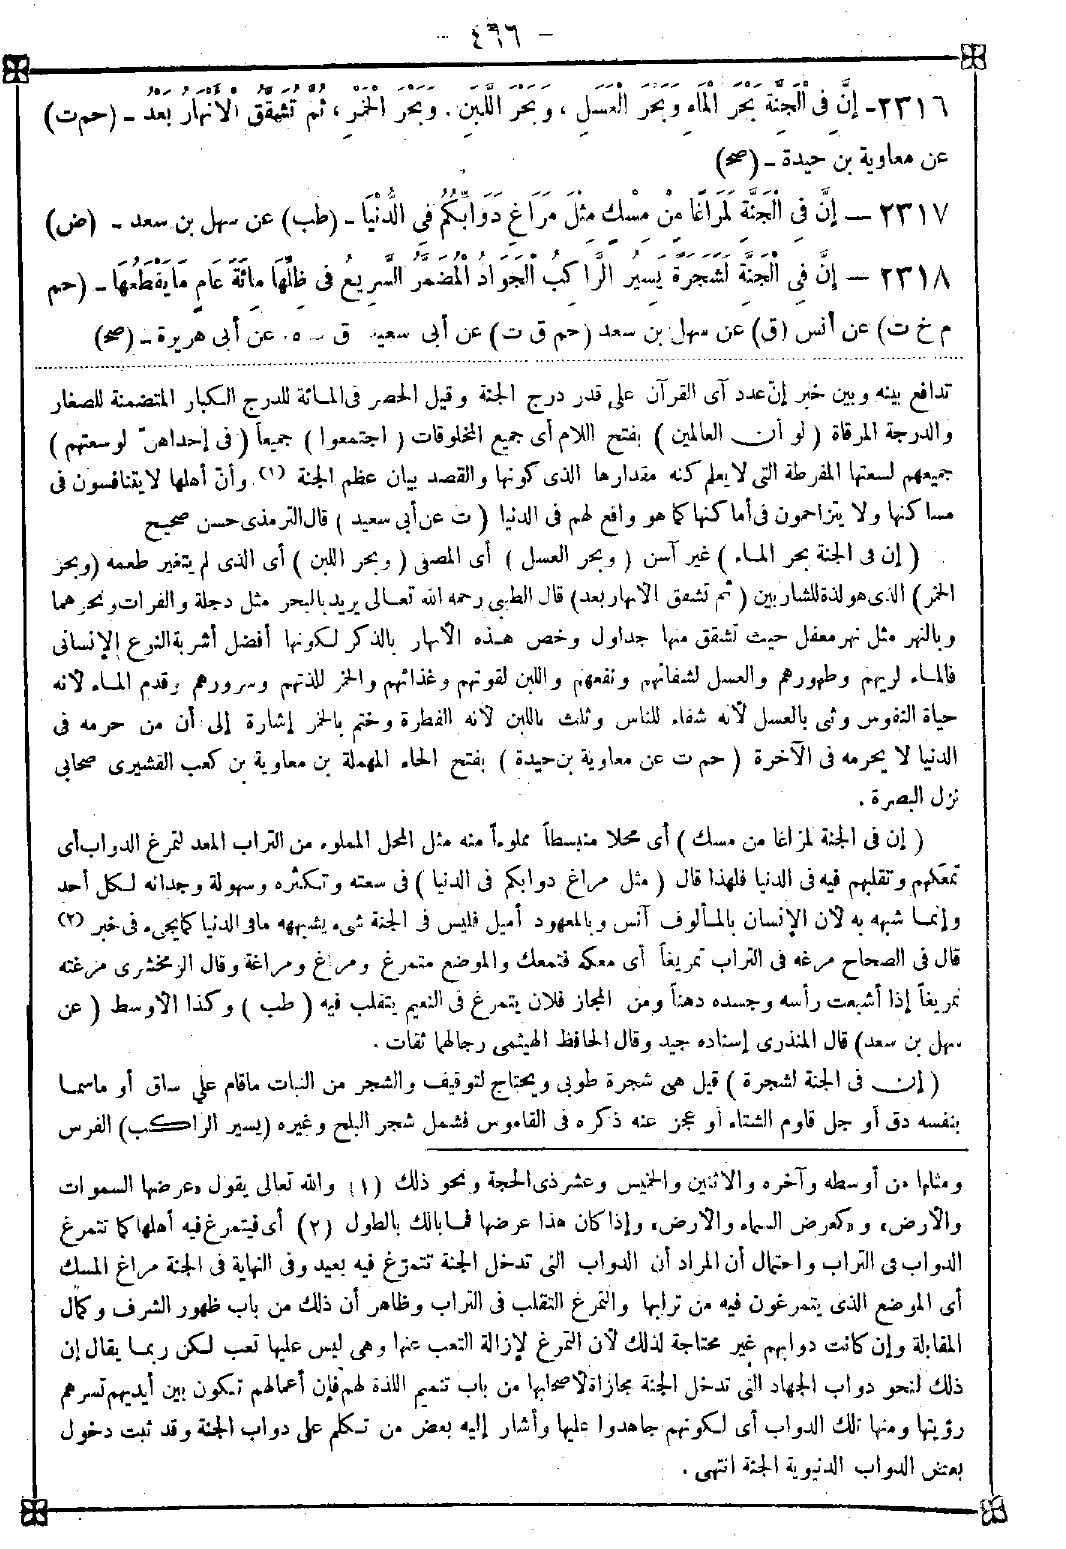 - ٤٦٦ -
٢٣١٦- إِنَّ فِى الْجَنَّةِ بَحْرَ الْمَاءِ وَبَحْرَ الْعَسَلِ ، وَبَحْرَ اللَّبَنِ . وَبَحْرَ الْخَمْرِ ، ثُمَّ تُشَقَّقُ الْأَنْهَارُ بَعْدُ - (حم ت)
عن معاوية بن حيدة - (صح)
٢٣١٧ - إِنَّ فِى الْجَنَّةِ لَمَرَاغًا مِنْ مِسْكٍ مِثْلَ مَرَاغِ دَوَابِّكُمْ فِى الدُّنْيَا - (طب) عن سهل بن سعد - (ض)
٢٣١٨ - إِنَّ فِى الْجَنَّةِ لَشَجَرَةً يَسِيرُ الرَّاكِبُ الْجَوَادُ الْمُضَمَّرُ السَّرِيعُ فِى ظِلِّهَا مِائَةَ عَامٍ مَا يَقْطَعُهَا - (حم
م خ ت) عن أنس (ق) عن سهل بن سعد (حم ق ت) عن أبى سعيد ق ـ ٥ ـ عن أبى هريرة - (صح)
تدافع بينه وبين خبر إن عدد آى القرآن على قدر درج الجنة وقيل الحصر فى المائة للدرج الكبار المتضمنة للصغار
والدرجة المرقاة ( لو أن العالمين ) بفتح اللام أى جميع المخلوقات ( اجتمعوا ) جميعاً ( فى إحداهن لوسعتهم )
جميعهم لسعتها المفرطة التى لا يعلم كنه مقدارها الذى كونها والقصد بيان عظم الجنة (١) وأن أهلها لا يتنافسون فى
مساكنها ولا يتزاحمون فى أماكنها كما هو واقع لهم فى الدنيا ( ت عن أبى سعيد ) قال الترمذى حسن صحيح
( إن فى الجنة بحر الماء ) غير آسن ( وبحر العسل ) أى المصفى ( وبحر اللبن ) أى الذى لم يتغير طعمه (وبحر
الخمر) الذى هو لذة للشاربين ( ثم تشقق الأنهار بعد) قال الطيبى رحمه الله تعالى يريد بالبحر مثل دجلة والفرات ونحوهما
وبالنهر مثل نهر معقل حيث تشقق منها جداول وخص هذه الأنهار بالذكر لكونها أفضل أشربة النوع الإنسانى
فالماء لريهم وطهورهم والعسل لشفائهم ونفعهم واللبن لقوتهم وغذائهم والخمر للذتهم وسرورهم وقدم الماء لأنه
حياة النفوس وثنى بالعسل لأنه شفاء للناس وثلث باللبن لأنه الفطرة وختم بالخمر إشارة إلى أن من حرمه فى
الدنيا لا يحرمه فى الآخرة ( حم ت عن معاوية بن حيدة ) بفتح الحاء المهملة بن معاوية بن كعب القشيرى صحابى
نزل البصرة .
( إن فى الجنة لمراغا من مسك ) أى محلا منبسطاً مملوءاً منه مثل المحل المملوء من التراب المعد لتمرغ الدواب أى
تمعكهم وتقلبهم فيه فى الدنيا فلهذا قال ( مثل مراغ دوابكم فى الدنيا ) فى سعته وتكثره وسهولة وجدانه لكل أحد
وإنما شبهه به لأن الإنسان بالمألوف آنس وبالمعهود أميل فليس فى الجنة شىء يشبهه ما فى الدنيا كما يجىء فى خبر (٢)
قال فى الصحاح مرغه فى التراب تمريغاً أى معكه فتمعك والموضع متمرغ ومراغ ومراغة وقال الزمخشرى مرغته
تمريغاً إذا أشبعت رأسه وجسده دهناً ومن المجاز فلان يتمرغ فى النعيم يتقلب فيه ( طب ) وكذا الأوسط ( عن
سهل بن سعد) قال المنذرى إسناده جيد وقال الحافظ الهيثمى رجالهما ثقات .
( إن فى الجنة لشجرة ) قيل هى شجرة طوبى ويحتاج لتوقيف والشجر من النبات ما قام على ساق أو ما سما
بنفسه دق أو جل قاوم الشتاء أو عجز عنه ذكره فى القاموس فشمل شجر البلح وغيره (يسير الراكب) الفرس
ومثلها من أوسطه وآخره والاثنين والخميس وعشر ذى الحجة ونحو ذلك (١) والله تعالى يقول «عرضها السموات
والأرض» و «كعرض السماء والأرض» وإذا كان هذا عرضها فما بالك بالطول (٢) أى فيتمرغ فيه أهلها كما تتمرغ
الدواب فى التراب واحتمال أن المراد أن الدواب التى تدخل الجنة تتمرّغ فيه بعيد وفى النهاية فى الجنة مراغ المسك
أى الموضع الذى يتمرغون فيه من ترابها والتمرغ التقلب فى التراب وظاهر أن ذلك من باب ظهور الشرف وكمال
المقابلة وإن كانت دوابهم غير محتاجة لذلك لأن التمرغ لإزالة التعب عنها وهى ليس عليها تعب لكن ربما يقال إن
ذلك لنحو دواب الجهاد التى تدخل الجنة مجازاة لأصحابها من باب تتميم اللذة لهم فإن أعمالهم تكون بين أيديهم تسرهم
رؤيتها ومنها تلك الدواب أى لكونهم جاهدوا عليها وأشار إليه بعض من تكلم على دواب الجنة وقد ثبت دخول
بعض الدواب الدنيوية الجنة انتهى .